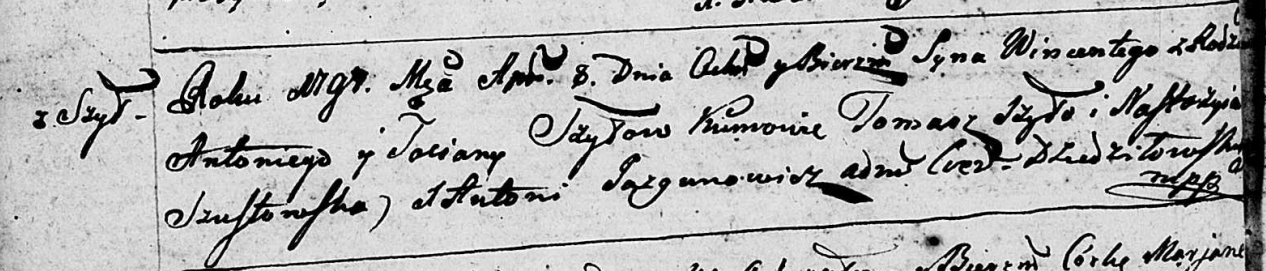 z Szył -
Roku 1797. Mca Apr. 8. Dnia Ochr y Bierzm Syna Wincentego z Rodz
Antoniego y Tociany Szyłow Kumowie Tomasz Szyło i Nastazyia
Szustowska) X Antoni Jazgunowicz adm Cer. Dziedziłowska
mpp
y Bierzm Corke Marjane